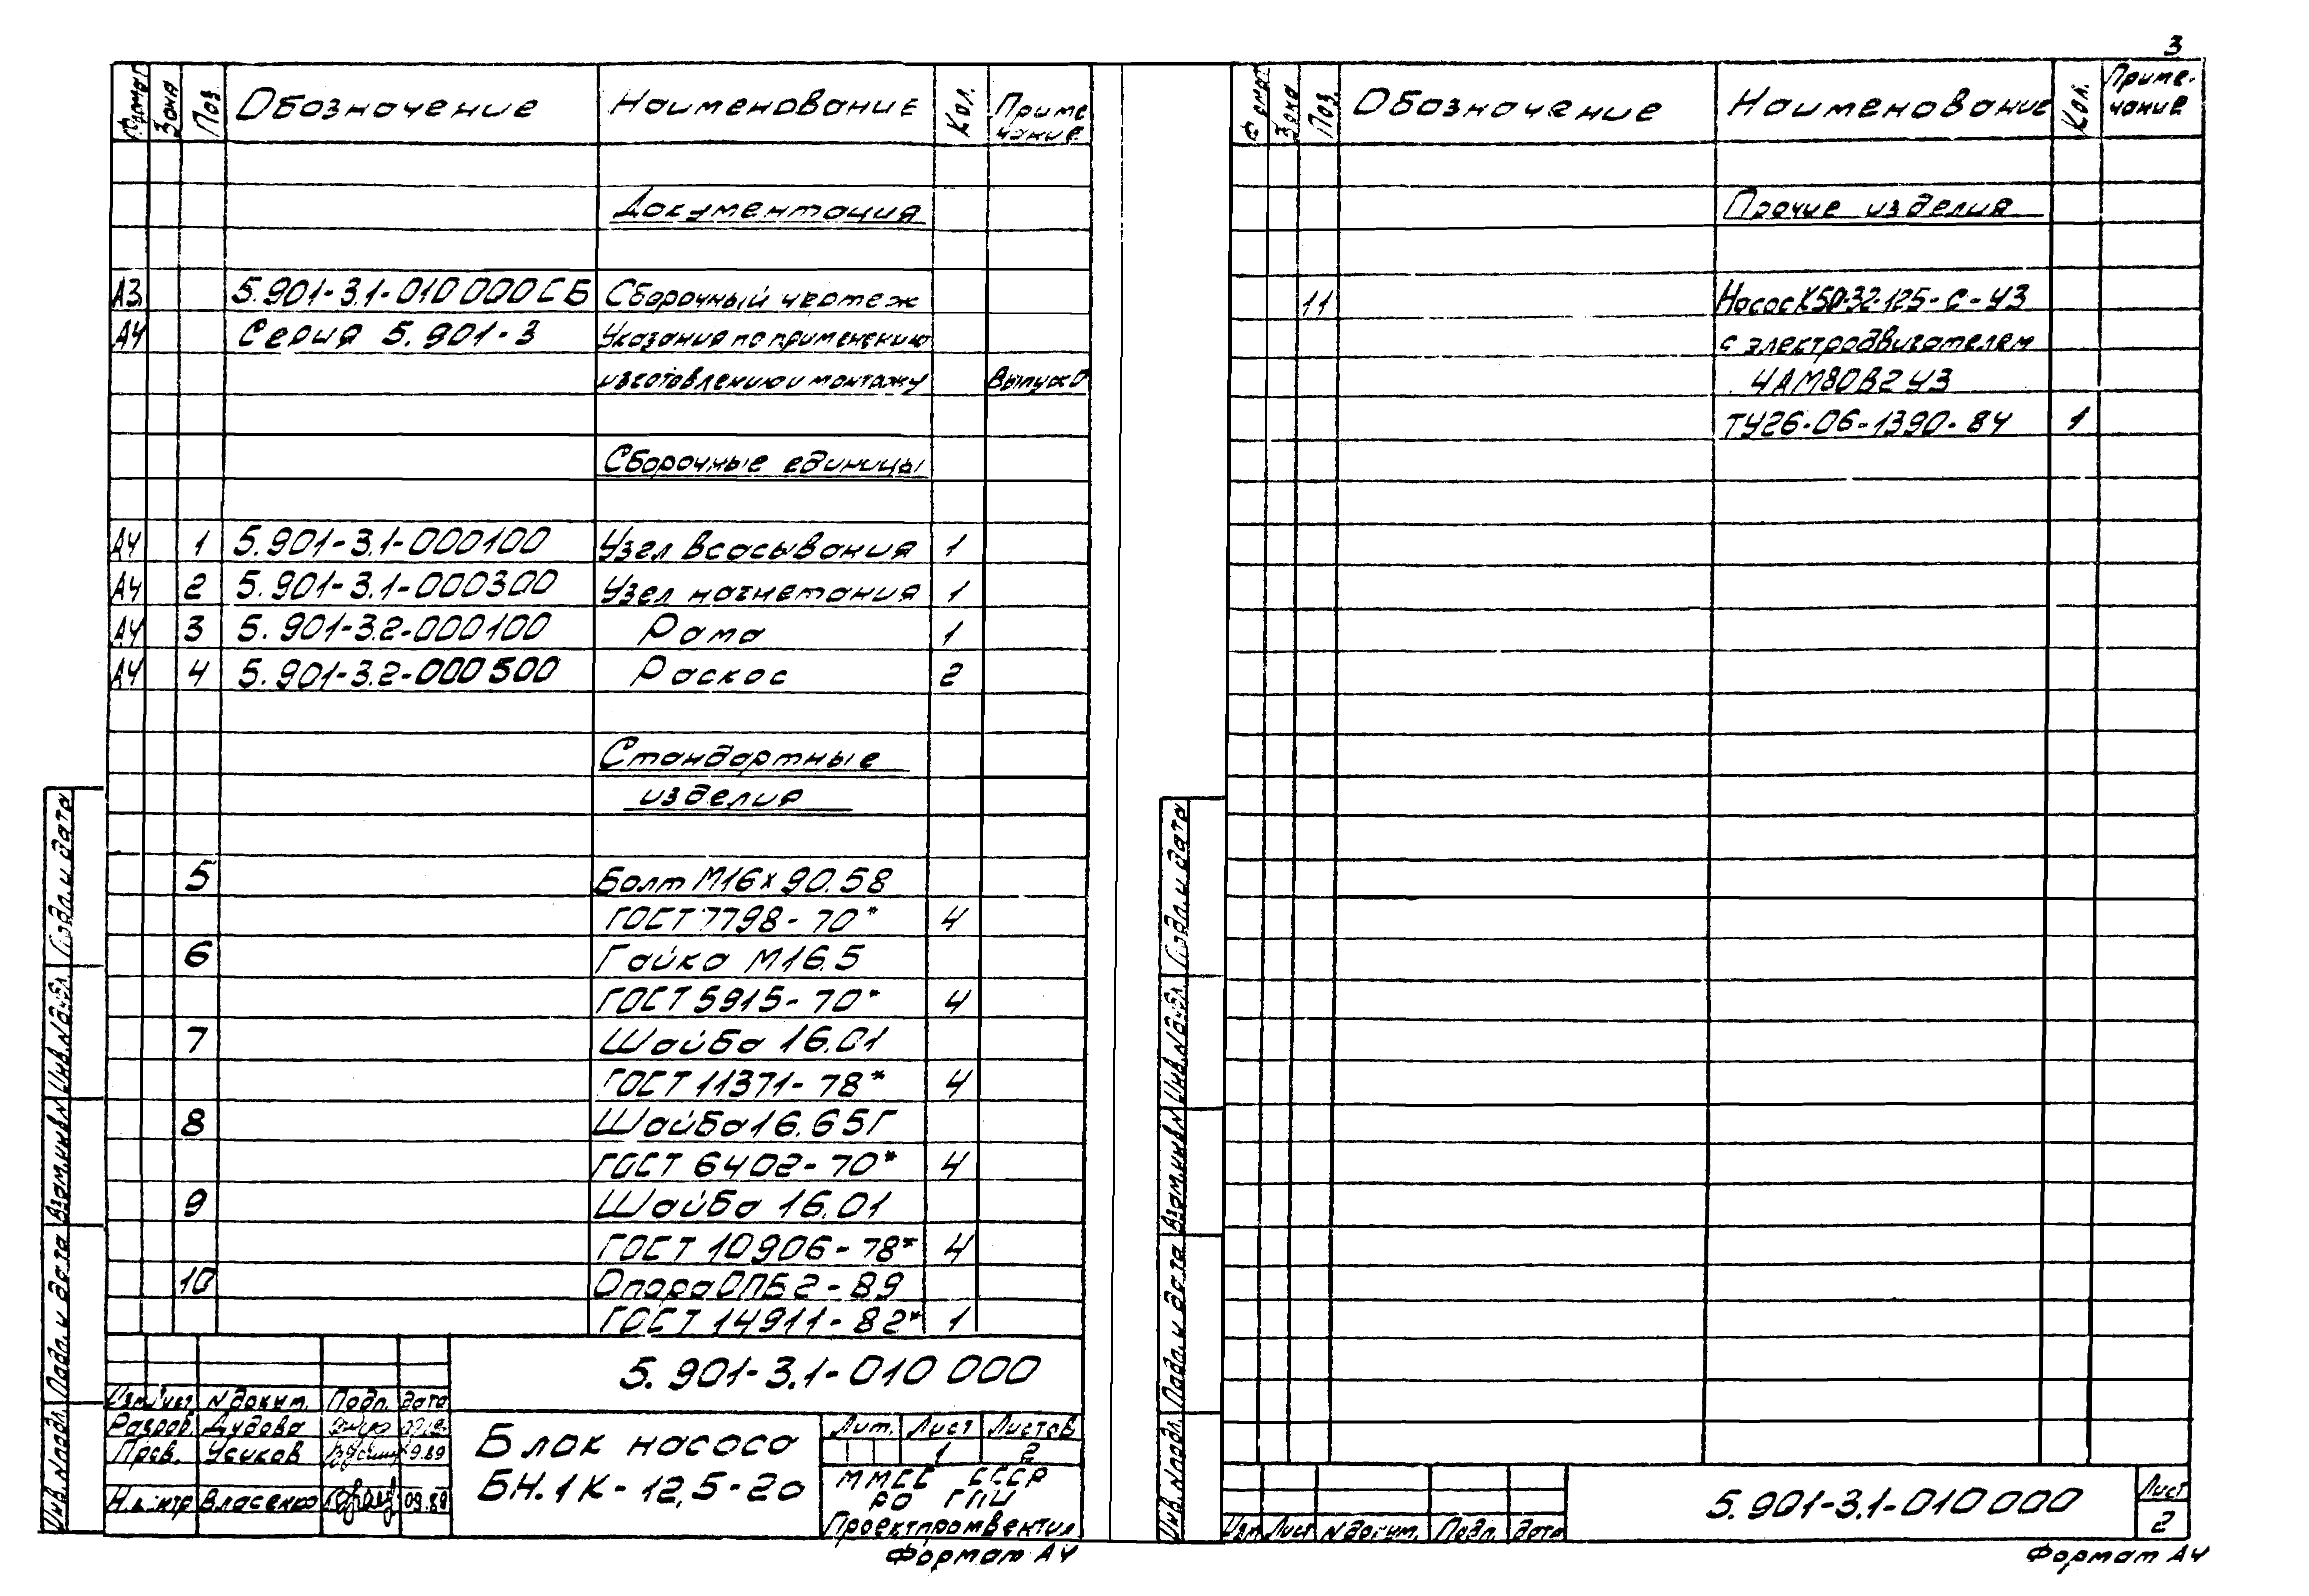 3
Формат Зона Поз. Обозначение Наименование Кол. Приме
чание
Документация
А3 5.901-3.1-010 000 СБ Сборочный чертеж
А4 Серия 5.901-3 Указания по применению
изготовлению и монтажу Выпуск 0
Сборочные единицы
А4 1 5.901-3.1-000100 Узел всасывания 1
А4 2 5.901-3.1-000300 Узел нагнетания 1
А4 3 5.901-3.2-000100 Рама 1
А4 4 5.901-3.2-000500 Раскос 2
Стандартные
изделия
5 Болт М16х90.58
ГОСТ 7798-70* 4
6 Гайка М16.5
ГОСТ 5915-70* 4
7 Шайба 16.01
ГОСТ 11371-78* 4
8 Шайба 16.65Г
ГОСТ 6402-70* 4
9 Шайба 16.01
ГОСТ 10906-78* 4
10 Опора ОПБ2-89
ГОСТ 14911-82* 1
5.901-3.1-010 000
Изм Лист N докум. Подп. дата
Разраб. Дудова
Пров. Усиков 9.89
Н.контр Власенко 09.89
Блок насоса
БН.1К-12,5-20
Лит. Лист Листов
1 2
ММСС СССР
РО ГПИ
Проектпромвентил
Формат А4
Инв.N подл. Подп. и дата Взам.инв.N Инв.N дубл. Подп. и дата
Формат Зона Поз. Обозначение Наименование Кол. Приме-
чание
Прочие изделия
11 Насос Х50-32-125-С-У3
с электродвигателем
4АМ80В2У3
ТУ26-06-1390-84 1
Инв.N подл. Подп. и дата Взам.инв.N Инв.N дубл. Подп. и дата
Изм Лист N докум. Подп. дата
5.901-3.1-010 000
Лист
2
Формат А4